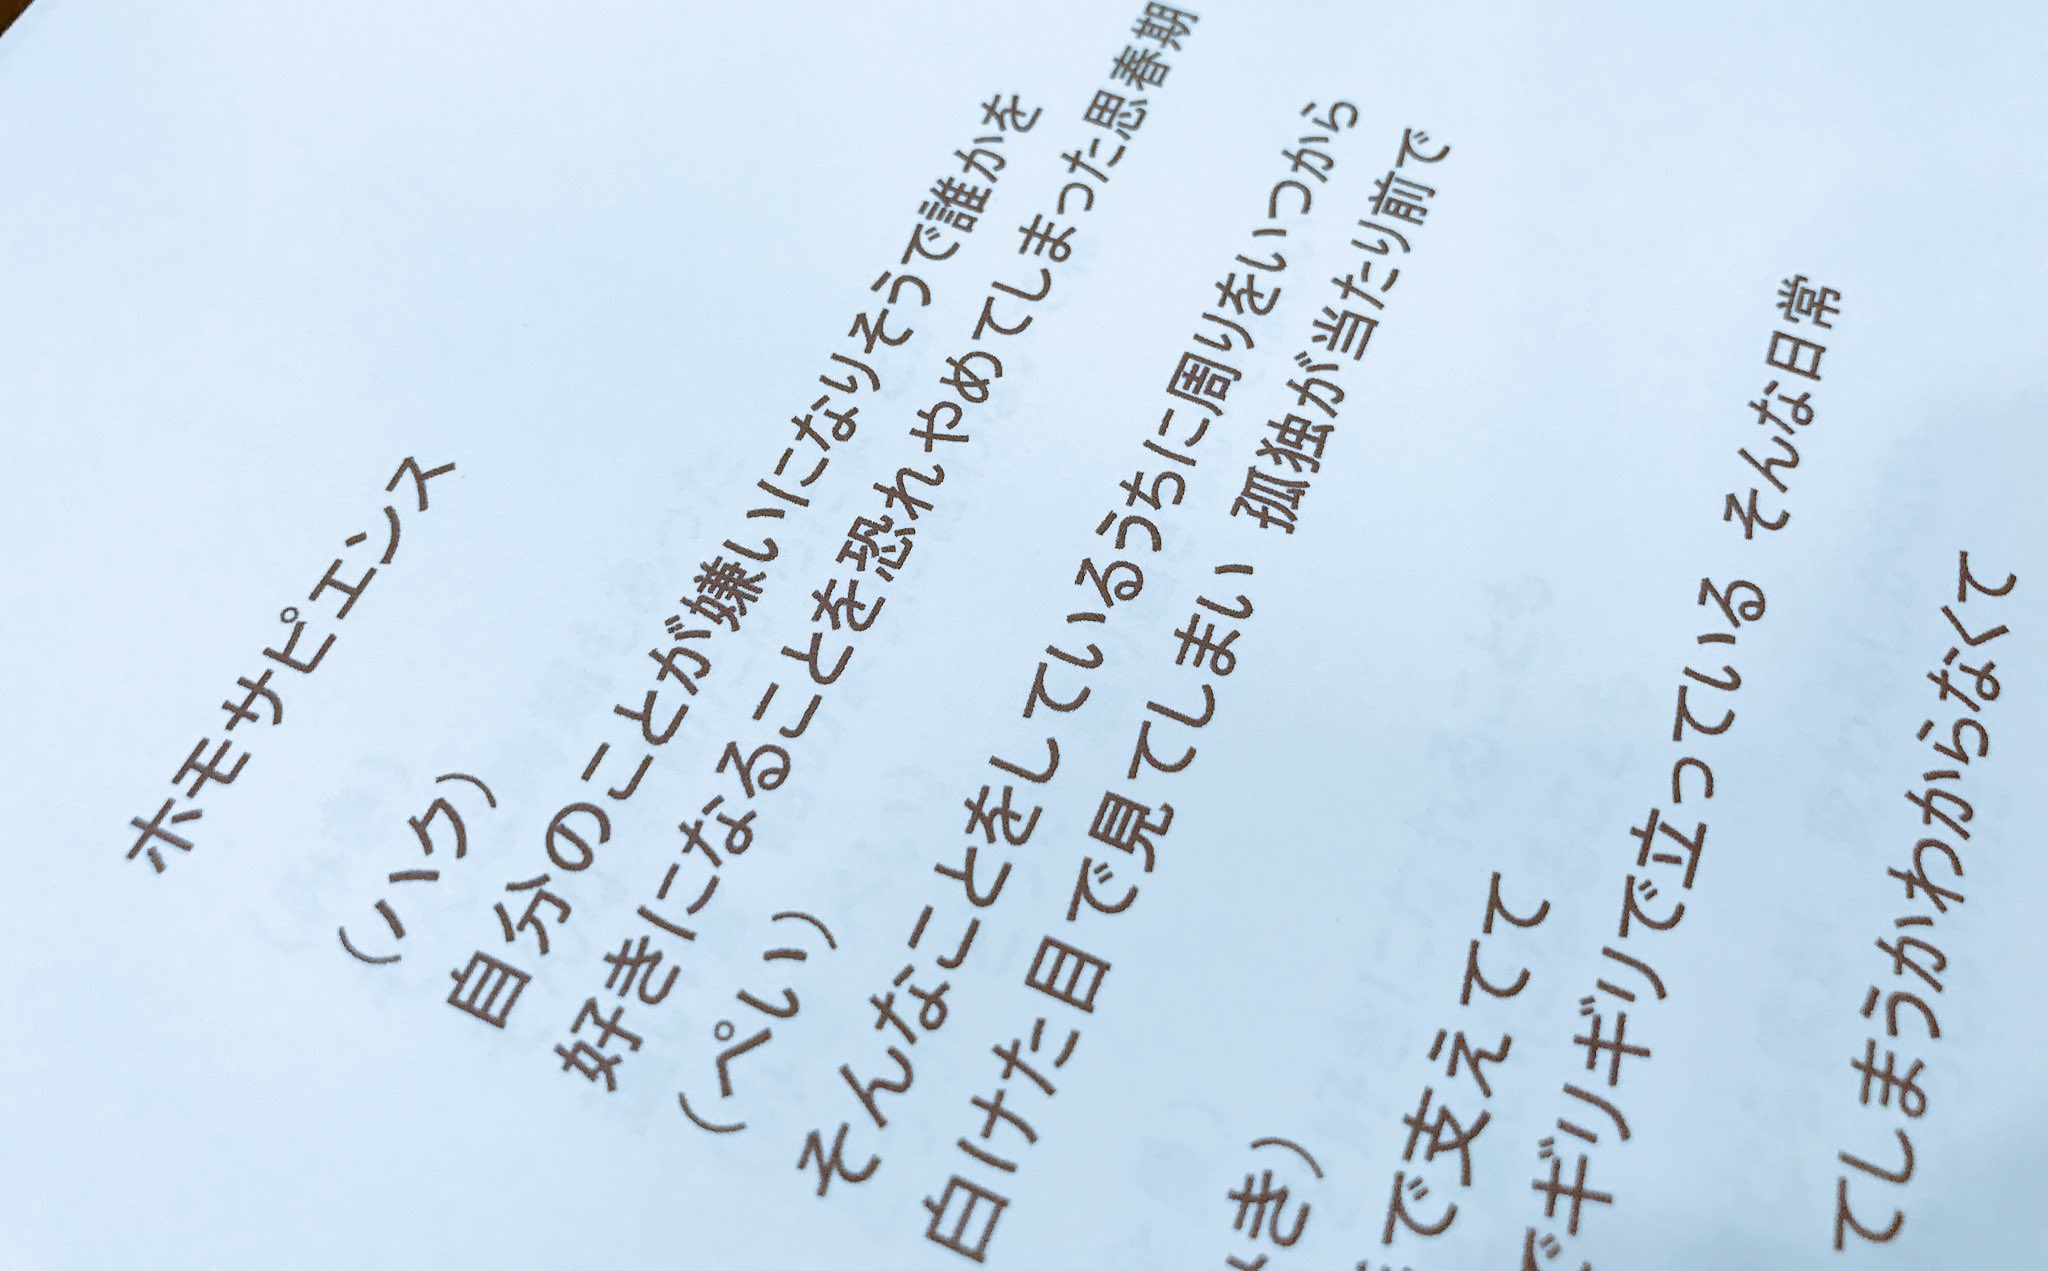 ホモサピエンス
（ハク）
自分のことが嫌いになりそうで誰かを
好きになることを恐れやめてしまった思春期
（ぺい）
そんなことをしているうちに周りをいつから
白けた目で見てしまい 孤独が当たり前で
き）
で支えてて
でギリギリで立っている そんな日常
てしまうかわからなくて